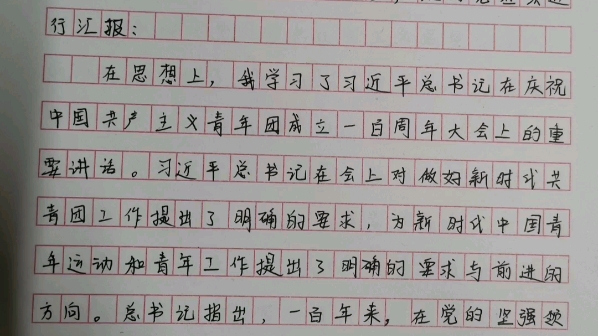 行汇报：
在思想上，我学习了习近平总书记在庆祝
中国共产主义青年团成立一百周年大会上的重
要讲话。习近平总书记在会上对做好新时代共
青团工作提出了明确的要求，为新时代中国青
年运动和青年工作提出了明确的要求与前进的
方向。总书记指出，一百年来，在党的坚强领